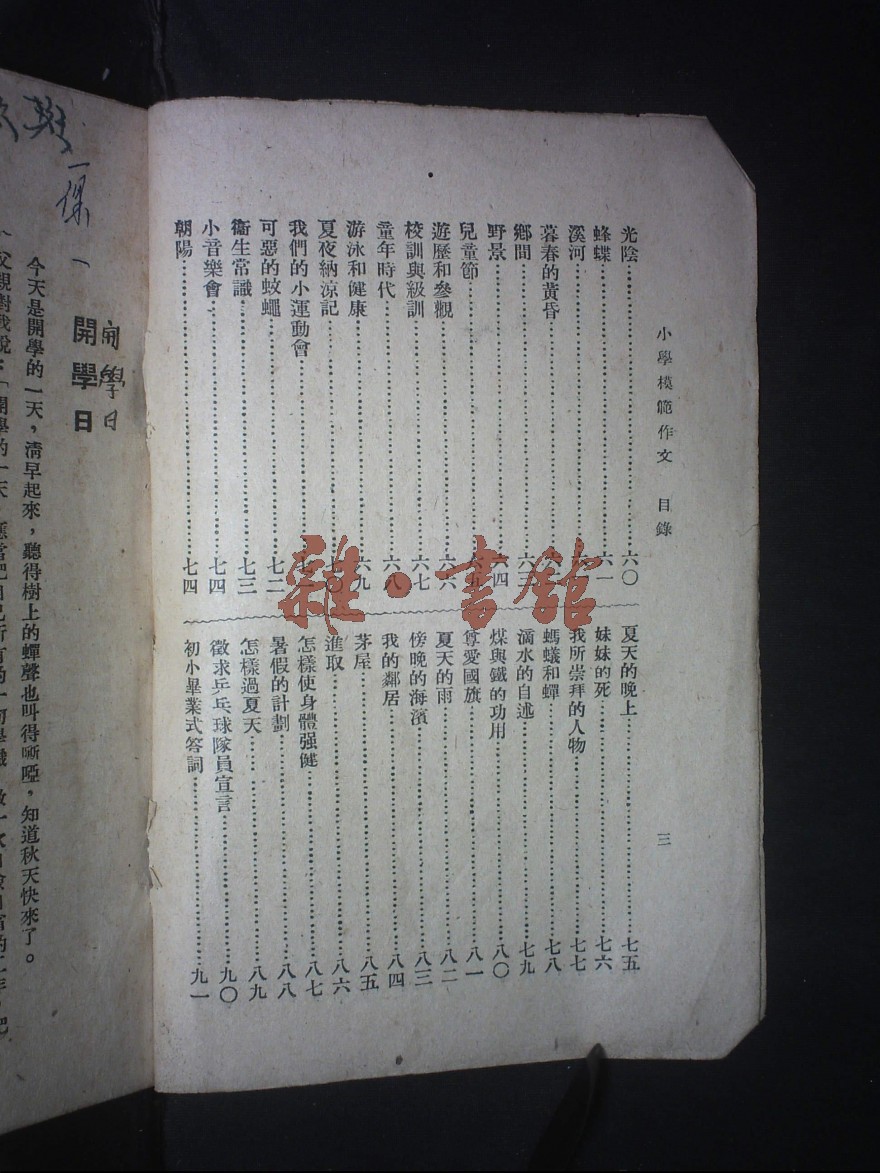 小學模範作文 目錄 三
光陰……六〇
蜂蝶……六一
溪河……六
暮春的黃昏……六
鄉間……六三
野景……六四
兒童節……六五
遊歷和參觀……六六
校訓與級訓……六七
童年時代……六八
游泳和健康……六九
夏夜納涼記……七〇
我們的小運動會……七
可惡的蚊蠅……七二
衞生常識……七三
小音樂會……七四
朝陽……七四
夏天的晚上……七五
妹妹的死……七六
我所崇拜的人物……七七
螞蟻和蟬……七八
滴水的自述……七九
煤與鐵的功用……八〇
尊愛國旗……八一
夏天的雨……八二
傍晚的海濱……八三
我的鄰居……八四
茅屋……八五
進取……八六
怎樣使身體强健……八七
暑假的計劃……八八
怎樣過夏天……八九
徵求乒乓球隊員宣言……九〇
初小畢業式答詞……九一
雜·書館
開學日
一 開學日
今天是開學的一天，清早起來，聽得樹上的蟬聲也叫得嘶啞，知道秋天快來了。
父親對我說：「開學的一天，應當把自己所有的一切學